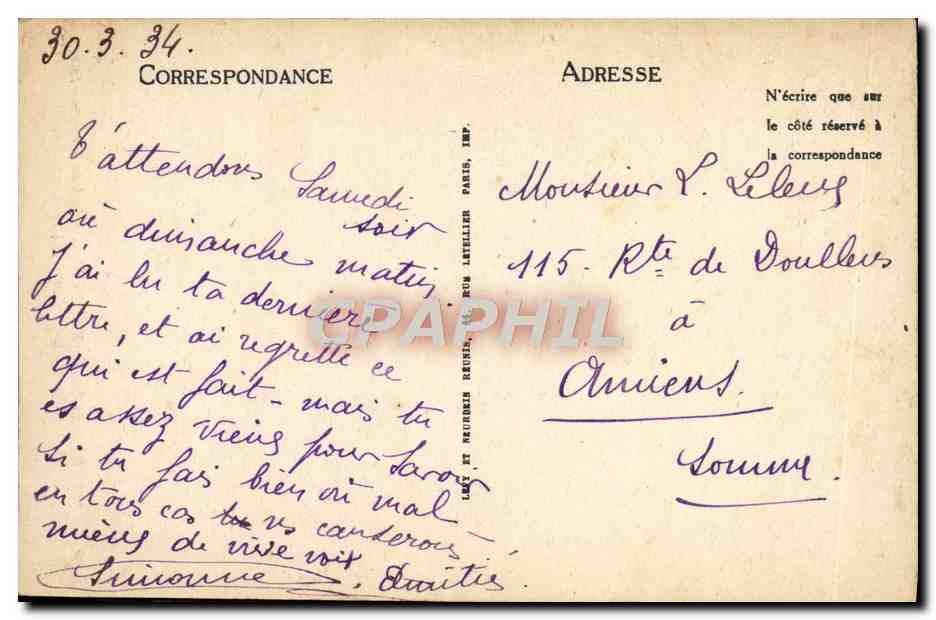 30.3.34.
CORRESPONDANCE
T'attendons Samedi
soir
où dimanche matin.
J'ai lu ta dernière
lettre, et ai regretté ce
qui est fait - mais tu
es assez vieux pour savoir
si tu fais bien où mal -
en tous cas ns causerons
mieux de vive voix
Simonne. Amitiés.
LEVY ET NEURDEIN RÉUNIS, 44, RUE LETELLIER PARIS, IMP.
ADRESSE
N'écrire que sur
le côté réservé à
la correspondance
Monsieur L. Leleux
115 - Rte de Doullens
à
Amiens.
Somme.
CPAPHIL